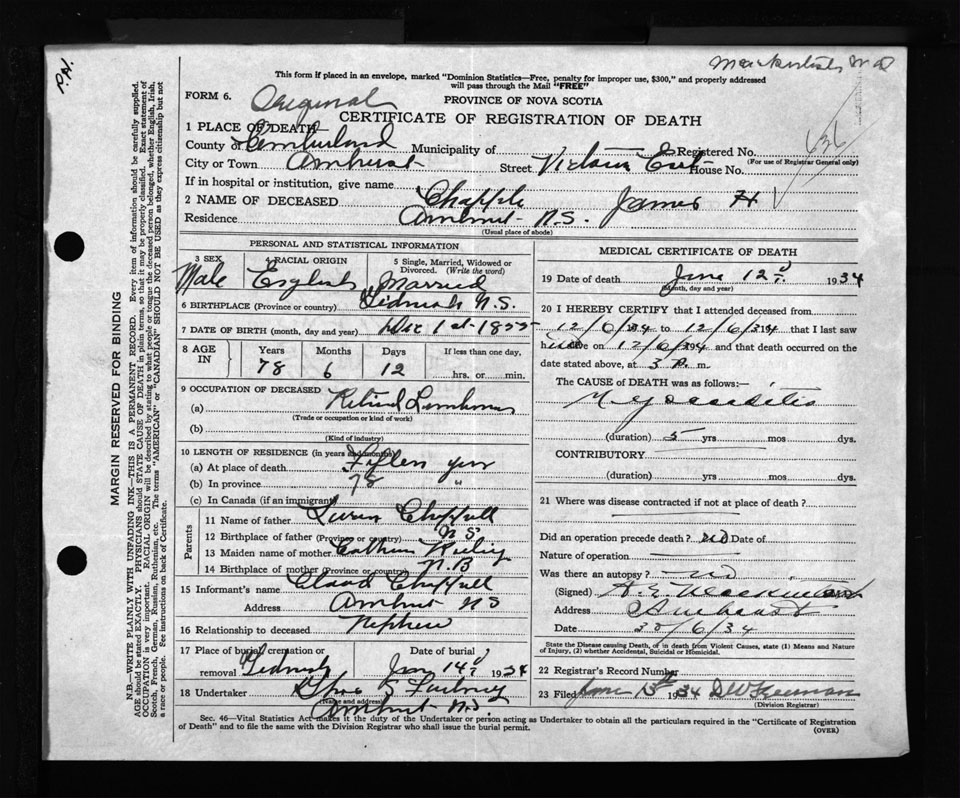 This form if placed in an envelope, marked "Dominion Statistics—Free, penalty for improper use, $300," and properly addressed
will pass through the Mail "FREE"
FORM 6. Original PROVINCE OF NOVA SCOTIA
CERTIFICATE OF REGISTRATION OF DEATH
1 PLACE OF DEATH—
County of Cumberland Municipality of Registered No. 636
(For use of Registrar General only)
City or Town Amherst Street Victoria East House No.
If in hospital or institution, give name
2 NAME OF DECEASED Chappell James H
Residence Amherst N.S.
(Usual place of abode)
PERSONAL AND STATISTICAL INFORMATION
3 SEX Male
4 RACIAL ORIGIN English
5 Single, Married, Widowed or Divorced. (Write the word) Married
6 BIRTHPLACE (Province or country) Tidnish N.S.
7 DATE OF BIRTH (month, day and year) Dec 1st 1855
8 AGE IN Years Months Days If less than one day,
78 6 12 hrs. or min.
9 OCCUPATION OF DECEASED
(a) Retired
(Trade or occupation or kind of work)
(b)
(Kind of industry)
10 LENGTH OF RESIDENCE (in years and months)
(a) At place of death Fifteen years
(b) In province 78 "
(c) In Canada (if an immigrant)
Parents
11 Name of father Chappell
12 Birthplace of father (Province or country) N S
13 Maiden name of mother
14 Birthplace of mother (Province or country) N.B
15 Informant's name Chappell
Address Amherst N S
16 Relationship to deceased Nephew
17 Place of burial cremation or removal Tidnish
Date of burial June 14th 1934
18 Undertaker
(Name and address)
Amherst N.S
MEDICAL CERTIFICATE OF DEATH
19 Date of death June 12th 1934
(Month, day and year)
20 I HEREBY CERTIFY that I attended deceased from
12/6/34 to 12/6/34 that I last saw
him alive on 12/6/34 and that death occurred on the
date stated above, at 3 P. m.
The CAUSE OF DEATH was as follows:—
Myocarditis
(duration) 5 yrs mos dys.
CONTRIBUTORY
(duration) yrs mos dys.
21 Where was disease contracted if not at place of death?
Did an operation precede death? no Date of
Nature of operation
Was there an autopsy? no
(Signed)
Address Amherst
Date 20/6/34
State the Disease causing Death, or in death from Violent Causes, state (1) Means and Nature
of Injury, (2) whether Accidental, Suicidal or Homicidal.
22 Registrar's Record Number
23 Filed June 1934
(Division Registrar)
Sec. 46—Vital Statistics Act makes it the duty of the Undertaker or person acting as Undertaker to obtain all the particulars required in the "Certificate of Registration
of Death" and to file the same with the Division Registrar who shall issue the burial permit. (OVER)
MARGIN RESERVED FOR BINDING
N.B.—WRITE PLAINLY WITH UNFADING INK—THIS IS A PERMANENT RECORD. Every item of information should be carefully supplied.
AGE should be stated EXACTLY. PHYSICIANS should STATE CAUSE OF DEATH in plain terms, so that it may be properly classified. Exact statement of
OCCUPATION is very important. RACIAL ORIGIN will be described by stating to what people or tongue the deceased person belonged, whether English, Irish,
Scotch, French, German, Russian, Ruthenian, etc. The terms "AMERICAN" or "CANADIAN" SHOULD NOT BE USED as they express citizenship but not
a race or people. See instructions on back of Certificate.